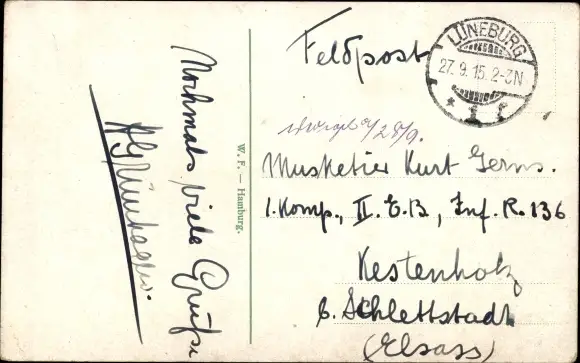 Nochmals viele Grüße
Feldpost
LÜNEBURG
27.9.15.2-3N
* 1 f
28/9.
Musketier Kurt Gerns.
1. Komp., II. E.B, Inf. R. 136
Kestenholz
b. Schlettstadt
(Elsass)
W. F. — Hamburg.